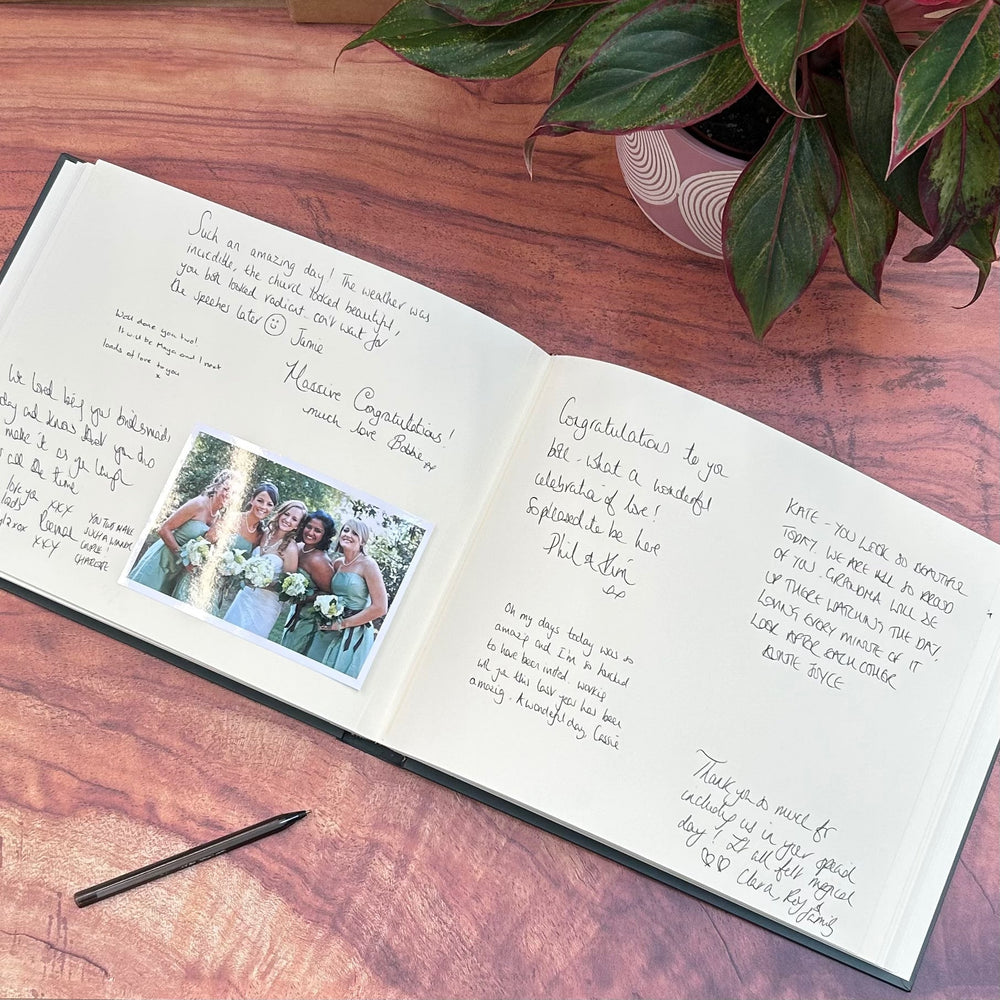 Such an amazing day! The weather was
incredible, the church looked beautiful,
you both looked radiant. can't wait for
the speeches later ☺ Jamie
Well done you two!
It will be Maya and I next
loads of love to you
x
Massive Congratulations!
much love Bobbie xx
We loved being your bridesmaids
day and know that you two
make it as you laugh
all the time
love you xxx
xxx
YOU TWO MAKE
SUCH A
COUPLE!
CHARLOTTE
Congratulations to you
both - what a wonderful
celebration of love!
So pleased to be here
Phil & Kim
xx
Oh my days today was so
amazing and I'm so honoured
to have been invited. working
with you this last year has been
amazing. A wonderful day, Cassie
KATE - YOU LOOK SO BEAUTIFUL
TODAY. WE ARE ALL SO PROUD
OF YOU. GRANDMA WILL BE
UP THERE WATCHING THE DAY
LOVING EVERY MINUTE OF IT
LOOK AFTER EACH OTHER
AUNTIE JOYCE
Thank you so much for
including us in your special
day! It all felt magical
♡♡ Clara, Roy &
family